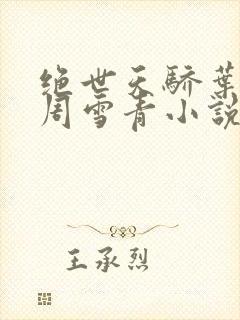 绝世天骄葉
周雪青小說
王承烈